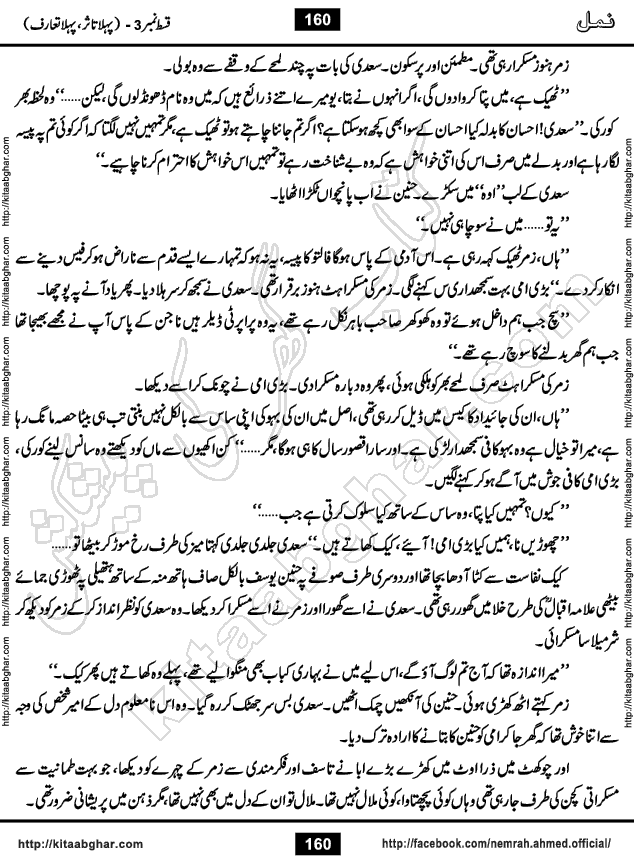 نمل
160
قسط نمبر 3 - (پہلا تاثر، پہلا تعارف)
زمر ہنوز مسکرا رہی تھی۔ مطمئن اور پرسکون۔ سعدی کی بات پہ چند لمحے کے وقفے سے وہ بولی۔
’’ٹھیک ہے، میں پتا کروا دوں گی، اگر انہوں نے بتا، یو میرے اتنے ذرائع ہیں کہ میں وہ نام ڈھونڈ لوں گی، لیکن......‘‘ وہ لحظہ بھر
کو رکی۔ ’’سعدی! احسان کا بدلہ کیا احسان کے سوا بھی کچھ ہو سکتا ہے؟ اگر تم جاننا چاہتے ہو تو ٹھیک ہے، مگر تمہیں نہیں لگتا کہ اگر کوئی تم پہ پیسہ
لگا رہا ہے اور بدلے میں صرف اس کی اتنی خواہش ہے کہ وہ بے شناخت رہے تو تمہیں اس خواہش کا احترام کرنا چاہیے۔‘‘
سعدی کے لب ’’اوہ‘‘ میں سکڑے۔ حنین نے اب پانچواں ٹکڑا اٹھایا۔
’’یہ تو...... میں نے سوچا ہی نہیں۔‘‘
’’ہاں، زمر ٹھیک کہہ رہی ہے۔ اس آدمی کے پاس ہوگا فالتو کا پیسہ، یہ نہ ہو کہ تمہارے ایسے قدم سے ناراض ہو کر فیس دینے سے
انکار کر دے۔‘‘ بڑی امی بہت سمجھداری س کہنے لگی۔ زمر کی مسکراہٹ ہنوز برقرار تھی۔ سعدی نے سمجھ کر سر ہلا دیا۔ پھر یاد آنے پہ پوچھا۔
’’سچ جب ہم داخل ہوئے تو وہ کھوکھر صاحب باہر نکل رہے تھے، یہ وہ پراپرٹی ڈیلر ہیں نا جن کے پاس آپ نے مجھے بھیجا تھا
جب ہم گھر بدلنے کا سوچ رہے تھے۔‘‘
زمر کی مسکراہٹ صرف لمحے بھر کو ہلکی ہوئی، پھر وہ دوبارہ مسکرا دی۔ بڑی امی نے چونک کر اسے دیکھا۔
’’ہاں، ان کی جائیداد کا کیس میں ڈیل کر رہی تھی، اصل میں ان کی بہو کی اپنی ساس سے بالکل نہیں بنتی تب ہی بیٹا حصہ مانگ رہا
ہے، میرا تو خیال ہے وہ بہو کافی سمجھدار لڑکی ہے۔ اور سارا قصور ساس کا ہی ہوگا، مگر......‘‘ کن اکھیوں سے ماں کو دیکھتے وہ سانس لینے کو رکی،
بڑی امی کافی جوش میں آگے ہو کر کہنے لگیں۔
’’کیوں؟ تمہیں کیا پتا، وہ ساس کے ساتھ کیا سلوک کرتی ہے جب......‘‘
’’چھوڑیں نا، ہمیں کیا بڑی امی! آیئے، کیک کھاتے ہیں۔‘‘ سعدی جلدی جلدی کہتا میز کی طرف رخ موڑ کر بیٹھا تو......
کیک نفاست سے کٹا آدھا بچا تھا اور دوسری طرف صوفے پہ حنین یوسف بالکل صاف ہاتھ منہ کے ساتھ ہتھیلی پہ ٹھوڑی جمائے
بیٹھی علامہ اقبالؒ کی طرح خلا میں گھور رہی تھی۔ سعدی نے اسے گھورا اور زمر نے اسے مسکرا کر دیکھا۔ وہ سعدی کو نظر انداز کر کے زمر کو دیکھ کر
شرمیلا سا مسکرائی۔
’’میرا اندازہ تھا کہ آج تم لوگ آؤ گے، اس لیے میں نے بہاری کباب بھی منگوا لیے تھے، پہلے وہ کھاتے ہیں پھر کیک۔‘‘
زمر کہتے اٹھ کھڑی ہوئی۔ حنین کی آنکھیں چمک اٹھیں۔ سعدی بس سر جھٹک کر رہ گیا۔ وہ اس نامعلوم دل کے امیر شخص کی وجہ
سے اتنا خوش تھا کہ گھر جا کر امی کو حنین کا بتانے کا ارادہ ترک کر دیا۔
اور چوکھٹ میں ذرا اوٹ میں کھڑے بڑے ابا نے تاسف اور فکرمندی سے زمر کے چہرے کو دیکھا، جو بہت طمانیت سے
مسکراتی کچن کی طرف جا رہی تھی وہاں کوئی پچھتاوا، کوئی ملال نہیں تھا۔ ملال تو ان کے دل میں بھی نہیں تھا، مگر ذہن میں پریشانی ضرور تھی۔
کتاب گھر کی پیشکش
kitaabghar.com
http://kitaabghar.com
http://kitaabghar.com
http://kitaabghar.com
http://kitaabghar.com
http://kitaabghar.com
http://kitaabghar.com
http://kitaabghar.com
http://kitaabghar.com
http://kitaabghar.com
http://kitaabghar.com
http://kitaabghar.com
http://kitaabghar.com
http://kitaabghar.com
160
http://facebook.com/nemrah.ahmed.official/